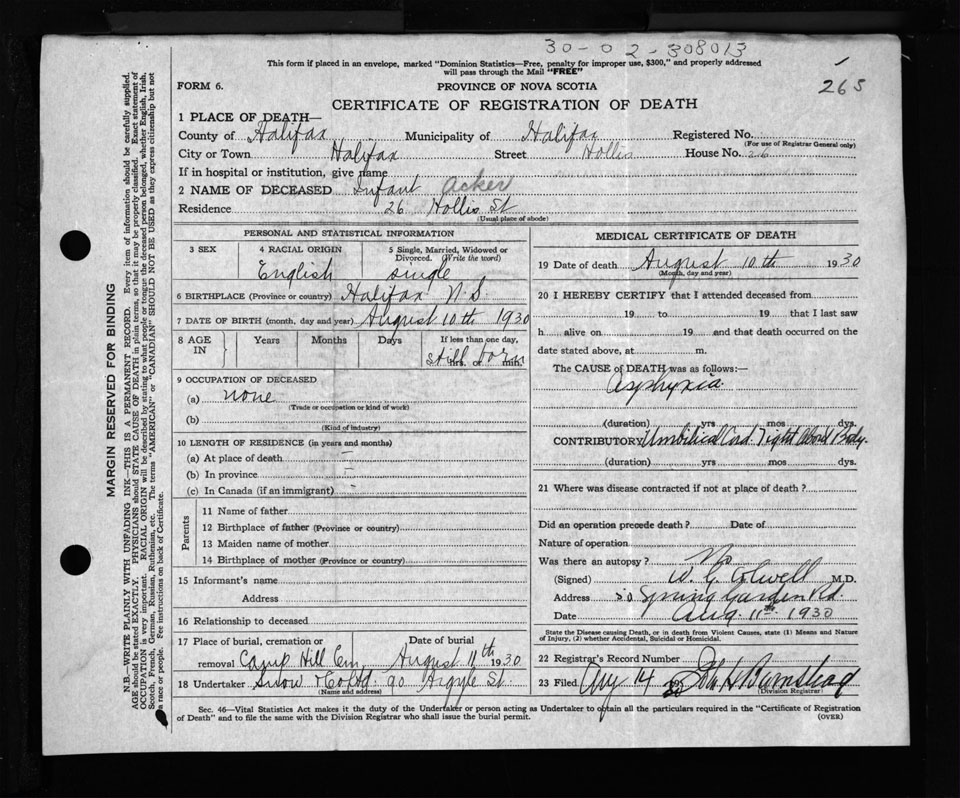 30-02-308013
265
This form if placed in an envelope, marked "Dominion Statistics—Free, penalty for improper use, $300," and properly addressed
will pass through the Mail "FREE"
FORM 6.
PROVINCE OF NOVA SCOTIA
CERTIFICATE OF REGISTRATION OF DEATH
1 PLACE OF DEATH—
County of Halifax Municipality of Halifax Registered No.
(For use of Registrar General only)
City or Town Halifax Street Hollis House No. 26
If in hospital or institution, give name
2 NAME OF DECEASED Infant Acker
Residence 26 Hollis St
(Usual place of abode)
PERSONAL AND STATISTICAL INFORMATION
3 SEX 4 RACIAL ORIGIN 5 Single, Married, Widowed or Divorced. (Write the word)
English single
6 BIRTHPLACE (Province or country) Halifax N.S.
7 DATE OF BIRTH (month, day and year) August 10th 1930
8 AGE IN Years Months Days If less than one day,
hrs. or min.
Still born
9 OCCUPATION OF DECEASED
(a) none
(Trade or occupation or kind of work)
(b)
(Kind of industry)
10 LENGTH OF RESIDENCE (in years and months)
(a) At place of death –
(b) In province –
(c) In Canada (if an immigrant) -
Parents
11 Name of father
12 Birthplace of father (Province or country)
13 Maiden name of mother
14 Birthplace of mother (Province or country)
15 Informant's name
Address
16 Relationship to deceased
17 Place of burial, cremation or removal Camp Hill Cem. Date of burial August 11th 1930
18 Undertaker Snow & Co Ltd. 90 Argyle St.
(Name and address)
MEDICAL CERTIFICATE OF DEATH
19 Date of death August 10th 1930
(Month, day and year)
20 I HEREBY CERTIFY that I attended deceased from
19 to 19 that I last saw
h alive on 19 and that death occurred on the
date stated above, at m.
The CAUSE OF DEATH was as follows:—
Asphyxia
(duration) yrs mos dys.
CONTRIBUTORY Umbilical Cord. Tight about Body.
(duration) yrs mos. dys.
21 Where was disease contracted if not at place of death?
Did an operation precede death? Date of
Nature of operation
Was there an autopsy? No
(Signed) W. G. Colwell M.D.
Address Spring Garden Rd.
Date Aug. 11th 1930
State the Disease causing Death, or in death from Violent Causes, state (1) Means and Nature
of Injury, (2) whether Accidental, Suicidal or Homicidal.
22 Registrar's Record Number
23 Filed Aug 14 1930 John H Barnstead
(Division Registrar)
Sec. 46—Vital Statistics Act makes it the duty of the Undertaker or person acting as Undertaker to obtain all the particulars required in the "Certificate of Registration
of Death" and to file the same with the Division Registrar who shall issue the burial permit.
(OVER)
MARGIN RESERVED FOR BINDING
N.B.—WRITE PLAINLY WITH UNFADING INK—THIS IS A PERMANENT RECORD. Every item of information should be carefully supplied.
AGE should be stated EXACTLY. PHYSICIANS should STATE CAUSE OF DEATH in plain terms, so that it may be properly classified. Exact statement of
OCCUPATION is very important. RACIAL ORIGIN will be described by stating to what people or tongue the deceased person belonged, whether English, Irish,
Scotch, French, German, Russian, Ruthenian, etc. The terms "AMERICAN" or "CANADIAN" SHOULD NOT BE USED as they express citizenship but not
a race or people. See instructions on back of Certificate.